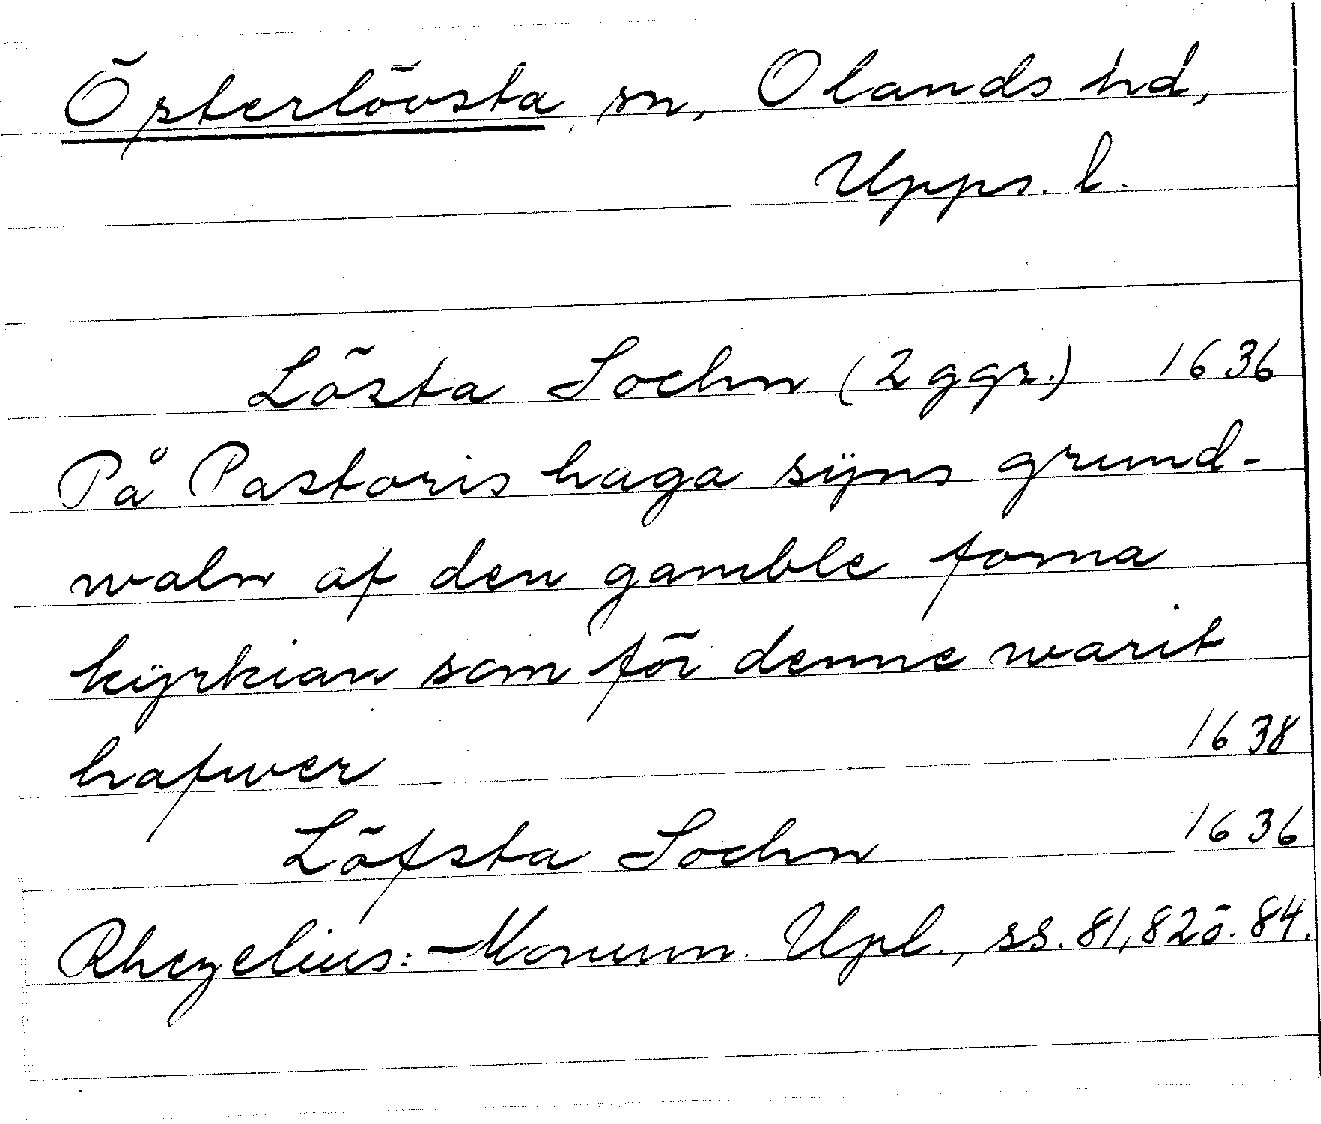 Österlövsta sn, Olands hd,
Upps. l.
Lösta Sochn (2 ggr.) 1636
På Pastoris haga sÿns grund-
waln af den gamble forna
kÿrkian som för denne warit
hafwer 1638
Löfsta Sochn 1636
Rhezelius: Monum. Upl., ss. 81, 82 o. 84.